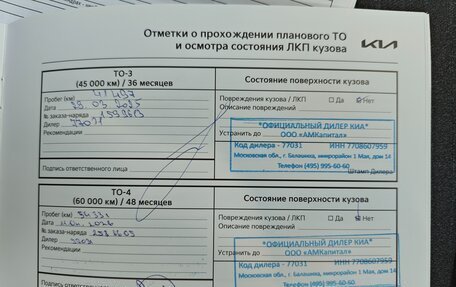 Отметки о прохождении планового ТО
и осмотра состояния ЛКП кузова
KIA
ТО-3
(45 000 км) / 36 месяцев
Состояние поверхности кузова
Пробег (км)
Дата 29 03 2025
№ заказа-наряда
Дилер 77031
Рекомендации
Повреждения кузова / ЛКП Да Нет
Описание повреждений
Устранить до
"ОФИЦИАЛЬНЫЙ ДИЛЕР КИА"
ООО «АМКапитал»
Код дилера - 77031 ИНН 7708607959
Московская обл., г. Балашиха, микрорайон 1 Мая, дом 14
Телефон (495) 995-60-60
Подпись ответственного лица
Штамп Дилера
ТО-4
(60 000 км) / 48 месяцев
Состояние поверхности кузова
Пробег (км)
Дата
№ заказа-наряда
Дилер
Рекомендации
Повреждения кузова / ЛКП Да Нет
Описание повреждений
Устранить до
"ОФИЦИАЛЬНЫЙ ДИЛЕР КИА"
ООО «АМКапитал»
Код дилера - 77031 ИНН 7708607959
Московская обл., г. Балашиха, микрорайон 1 Мая, дом 14
Телефон (495) 995-60-60
Подпись ответственного лица